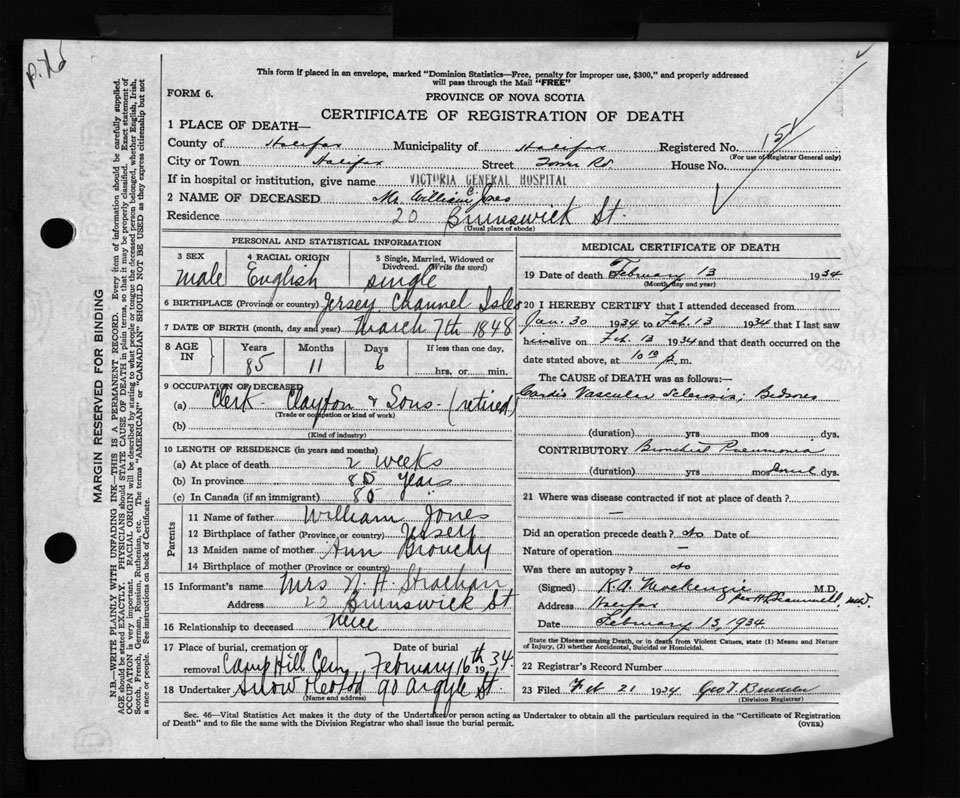 P. X
This form if placed in an envelope, marked "Dominion Statistics—Free, penalty for improper use, $300," and properly addressed
will pass through the Mail "FREE"
FORM 6.
PROVINCE OF NOVA SCOTIA
CERTIFICATE OF REGISTRATION OF DEATH
1 PLACE OF DEATH—
County of Halifax Municipality of Halifax Registered No. 151
(For use of Registrar General only)
City or Town Halifax Street Tower Rd. House No.
If in hospital or institution, give name VICTORIA GENERAL HOSPITAL
2 NAME OF DECEASED Mr. William C Jones
Residence 20 Brunswick St.
(Usual place of abode)
PERSONAL AND STATISTICAL INFORMATION
3 SEX 4 RACIAL ORIGIN 5 Single, Married, Widowed or
Divorced. (Write the word)
male English single
6 BIRTHPLACE (Province or country) Jersey Channel Isles
7 DATE OF BIRTH (month, day and year) March 7th 1848
8 AGE IN Years Months Days If less than one day,
85 11 6 hrs. or min.
9 OCCUPATION OF DECEASED
(a) Clerk Clayton & Sons (retired)
(Trade or occupation or kind of work)
(b)
(Kind of industry)
10 LENGTH OF RESIDENCE (in years and months)
(a) At place of death 2 weeks
(b) In province 80 years
(c) In Canada (if an immigrant) 80
Parents
11 Name of father William Jones
12 Birthplace of father (Province or country) Jersey
13 Maiden name of mother Ann Grouchy
14 Birthplace of mother (Province or country)
15 Informant's name Mrs. N. H. Strachan
Address 20 Brunswick St
16 Relationship to deceased Neice
17 Place of burial, cremation or removal Date of burial
Camp Hill Cem February 16th 1934
18 Undertaker Snow 90 Argyle St.
(Name and address)
MEDICAL CERTIFICATE OF DEATH
19 Date of death February 13 1934
(Month, day and year)
20 I HEREBY CERTIFY that I attended deceased from
Jan. 30 1934 to Feb. 13 1934 that I last saw
him alive on Feb. 13 1934 and that death occurred on the
date stated above, at 10 10 p. m.
The CAUSE OF DEATH was as follows:—
Cardio Vascular Sclerosis; Bedsores
(duration) yrs mos dys.
CONTRIBUTORY Bronchial Pneumonia
(duration) yrs mos dys.
21 Where was disease contracted if not at place of death?
—
Did an operation precede death? No Date of
Nature of operation —
Was there an autopsy? No
(Signed) K. A. MacKenzie M.D.
per H. Scammell, M.D.
Address Halifax
Date February 13, 1934
State the Disease causing Death, or in death from Violent Causes, state (1) Means and Nature
of Injury, (2) whether Accidental, Suicidal or Homicidal.
22 Registrar's Record Number
23 Filed Feb 21 1934 Geo. T.
(Division Registrar)
Sec. 46—Vital Statistics Act makes it the duty of the Undertaker or person acting as Undertaker to obtain all the particulars required in the "Certificate of Registration
of Death" and to file the same with the Division Registrar who shall issue the burial permit. (OVER)
MARGIN RESERVED FOR BINDING
N.B.—WRITE PLAINLY WITH UNFADING INK—THIS IS A PERMANENT RECORD. Every item of information should be carefully supplied.
AGE should be stated EXACTLY. PHYSICIANS should STATE CAUSE OF DEATH in plain terms, so that it may be properly classified. Exact statement of
OCCUPATION is very important. RACIAL ORIGIN will be described by stating to what people or tongue the deceased person belonged, whether English, Irish,
Scotch, French, German, Russian, Ruthenian, etc. The terms "AMERICAN" or "CANADIAN" SHOULD NOT BE USED as they express citizenship but not
a race or people. See instructions on back of Certificate.